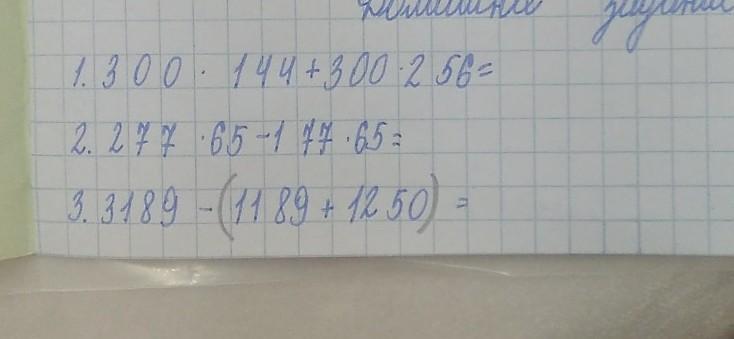 Домашнее задание
1. 300 · 144 + 300 · 256 =
2. 277 · 65 - 177 · 65 =
3. 3189 - (1189 + 1250) =